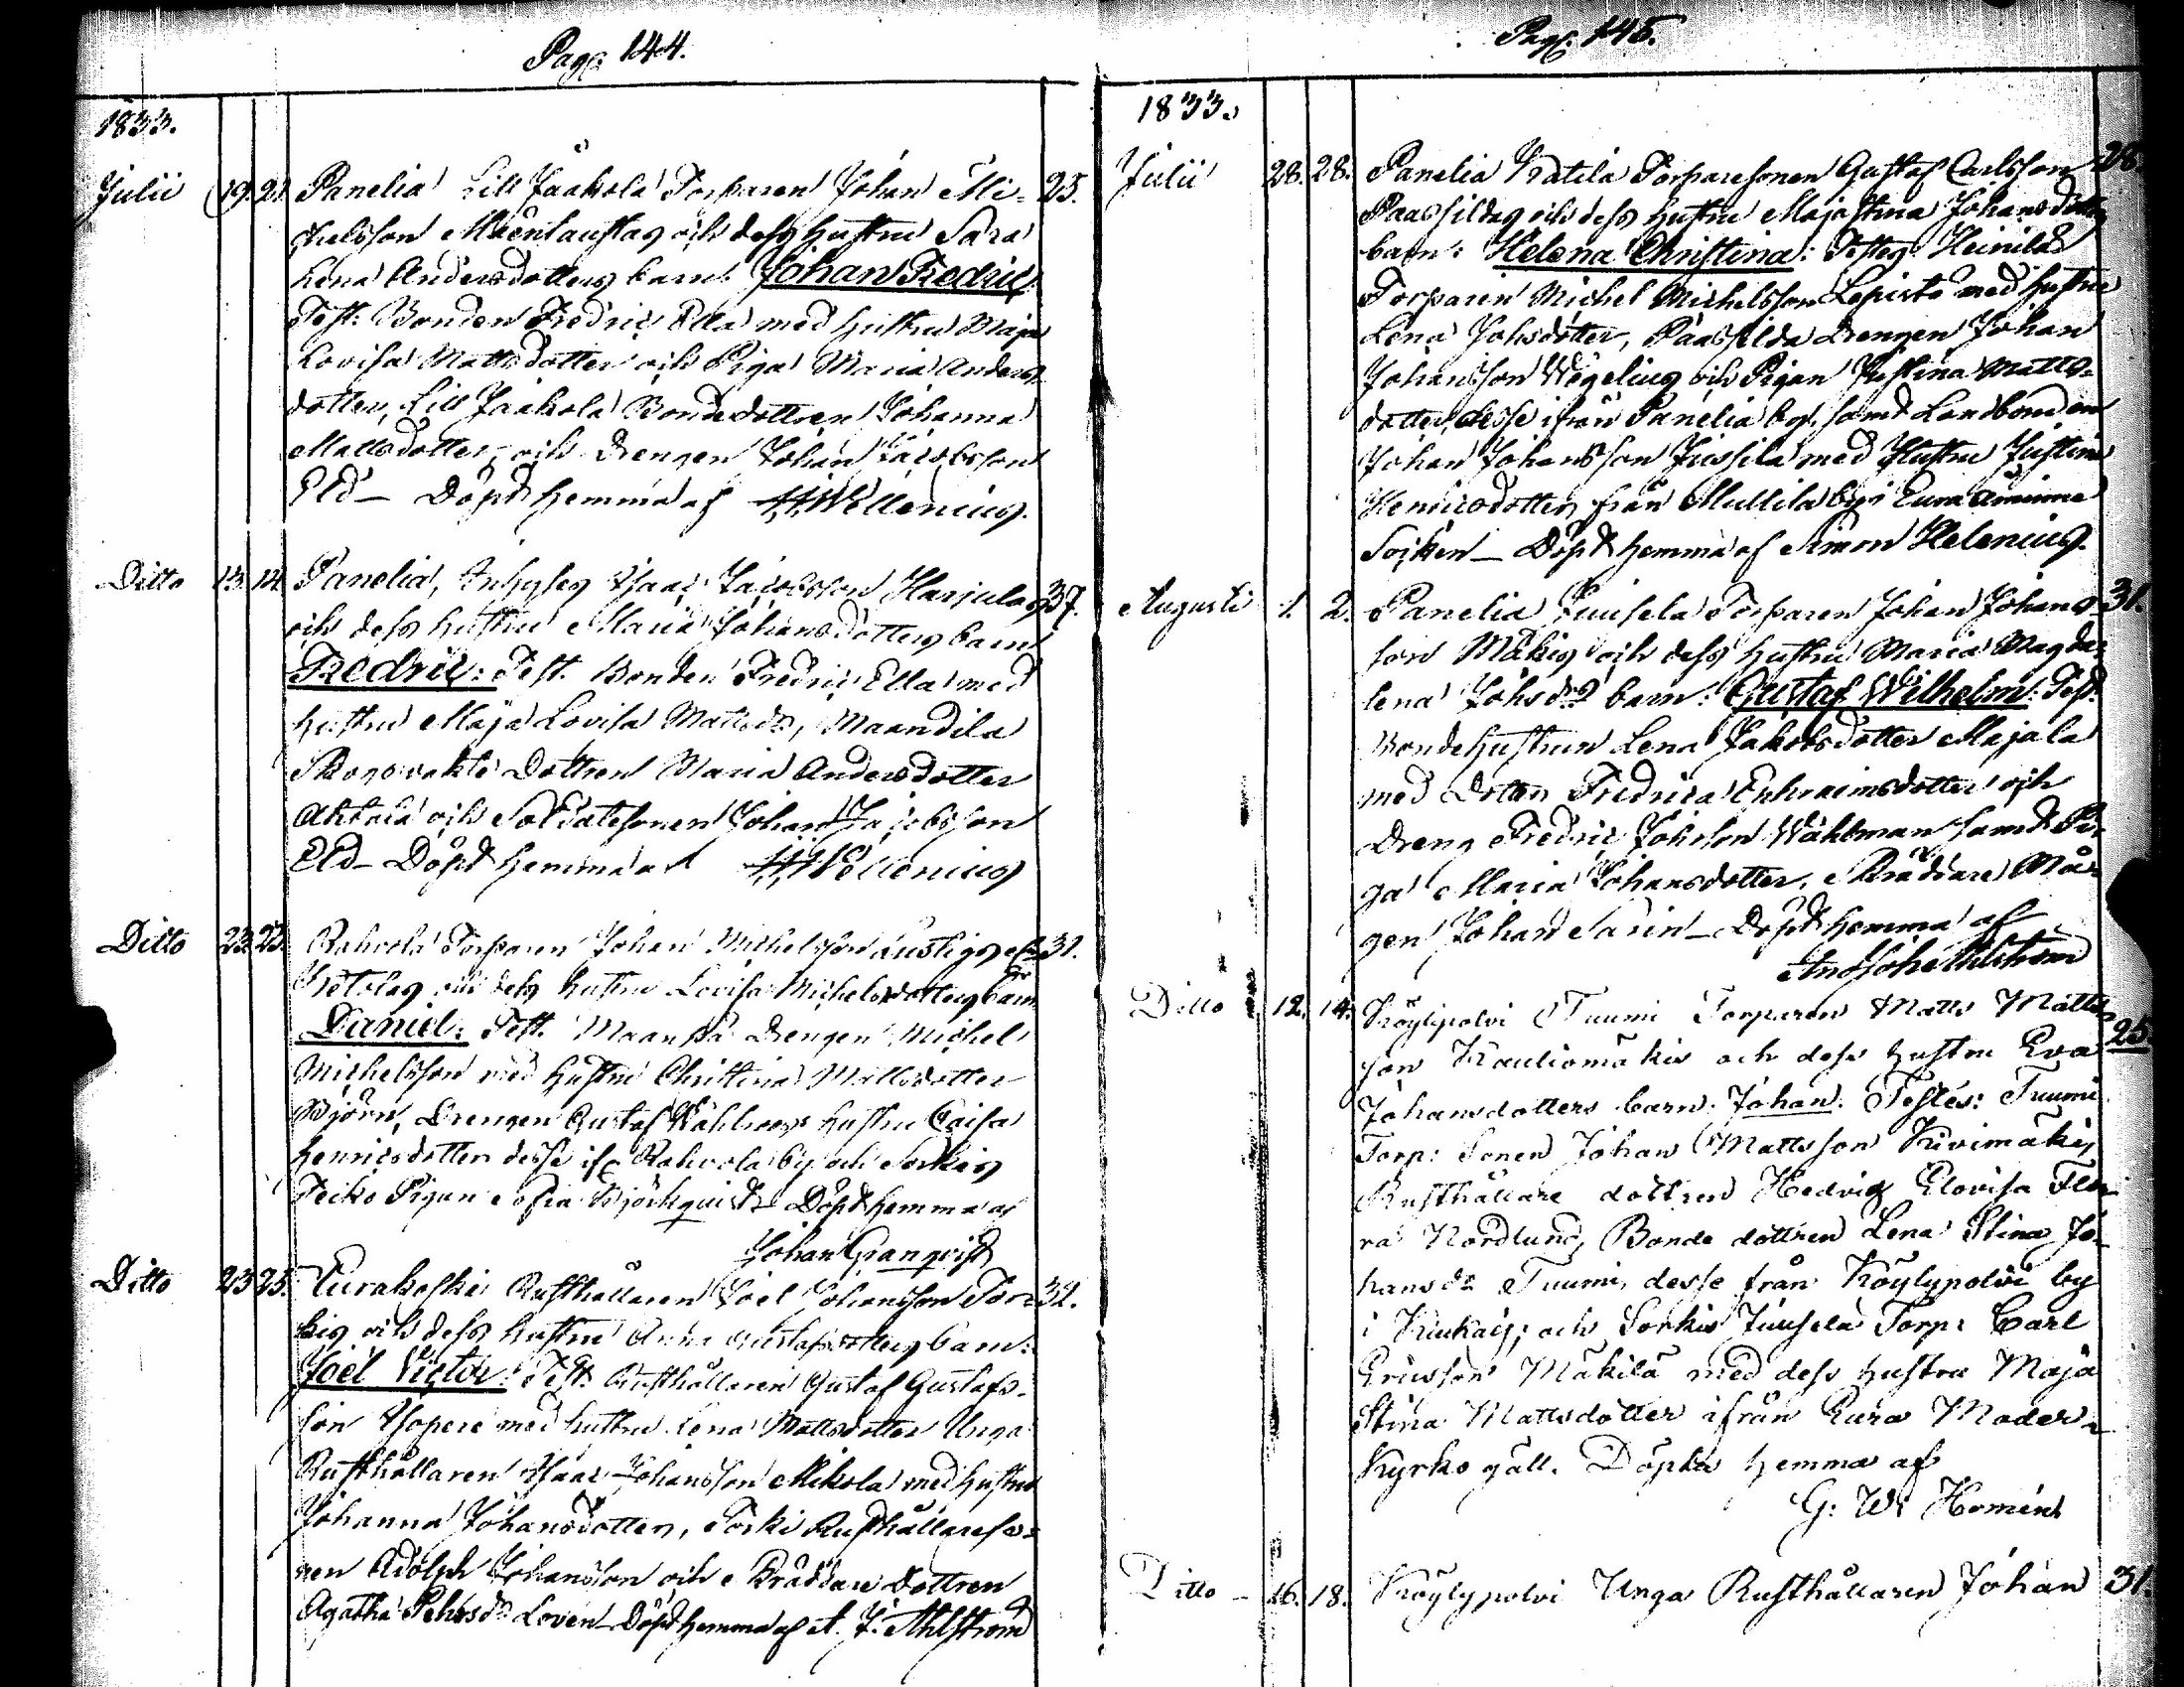 Pag. 144.
1833.
Julii 19. 21. Panelia Lill Jaakola Torparen Johan Mi- 25.
chelsson och dess hustru Sara
Lena Andersdotters barn: Johan Fredric
Test: Bonden Fredric Ella med hustru Maja
Lovisa Mattsdotter och Piga Maria Anders-
dotter, Lill Jaakola Bondedottren Johanna
Mattsdotter och Drengen Johan Jacobsson
Eld – Döpt hemma af Wellenius.
Ditto 13. 14. Panelia, Inhyses Isaac Jacobsson Harjulas 37.
och dess hustru Maria Johansdotters barn
Fredric: Test. Bonden Fredric Ella med
hustru Maja Lovisa Mattsdr, Maandila
Skogvakts Dottren Maria Andersdotter
och Soldatesonen Johan Jacobsson
Eld – Döpt hemma af Wellenius
Ditto 23. 25. Rahvola Torparen Johan Michelsson 31.
och dess hustru Lovisa Michelsdotters barn
Daniel: Test. Maanpä Drengen Michel
Michelsson med hustru Christina Mattsdotter
Björn, Drengen Gustaf hustru Caisa
Henricsdotter desse ifr Rahvola by och Sorkis
Teiko Pigan Sofia Björkquist – Döpt hemma af
Johan Granqvist
Ditto 23 25. Eurakoski Rusthållaren Joel Johansson Tor- 32.
kis och dess hustru Anna Gustafsdotters barn:
Joel Victor: Test. Rusthållaren Gustaf Gustafs-
son Isopere med hustru Lena Mattsdotter Unga
Rusthållaren Isaac Johansson Mikola med hustru
Johanna Johansdotter, Torki Rusthållareso-
nen Adolph Johansson och Skräddare Dottren
Agatha Pehrsdr Loven – Döpt hemma af A. J. Ahlstrom
Pag. 145.
1833.
Julii 28. 28. Panelia Torparesonen Gustaf Carlsson 28.
Paassildas och dess hustru Maja Stina Johansdotters
barn: Helena Christina: Testes: Heinilä
Torparen Michel Michelsson Lepistö med hustru
Lena Johsdotter, Paassilda Drengen Johan
Johansson Wegelius och Pigan Justina Matts-
dotter, desse ifrån Panelia by, samt Landbonden
Johan Johansson Jussila med Hustru Justina
Henricsdotter från Mullila by i Euraåminne
Socken – Döpt hemma af Simon Helenius.
Augusti 1. 2. Panelia Torparen Johan Johans- 31.
son Mäkis och dess hustru Maria Magda-
lena Johsdr barn: Gustaf Wilhelm: Test.
Bondehustrun Lena Jakobsdotter Majala
med Dotter Fredrica Ephraimsdotter och
Dreng Fredric Johsson Wahlman samt Pi-
ga Maria Johansdotter, Skräddare Må-
gen Johan Sarin – Döpt hemma af
And Joh Ahlstrom
Ditto 12. 14. Köylypolvi Tuumi Torparen Matts Matts-
son Kautiomäkis och dess hustru Eva 25.
Johansdotters barn: Johan: Testes: Tuumi
Torp: Sonen Johan Mattsson Kivimäki,
Rusthållare dottren Hedvig Elovisa Flo-
ra Nordlund, Bonde dottren Lena Stina Jo-
hansdr Tuumi, desse från Köylypolvi by
i Kiukais, och Sorkis Juusela Torp: Carl
Ericsson Mäkilä med dess hustru Maja
Stina Mattsdotter ifrån Eura Moder-
Kyrko gäll. Döpta hemma af
G: W: Homén
Ditto – 16. 18. Köylypolvi Unga Rusthållaren Johan 31.